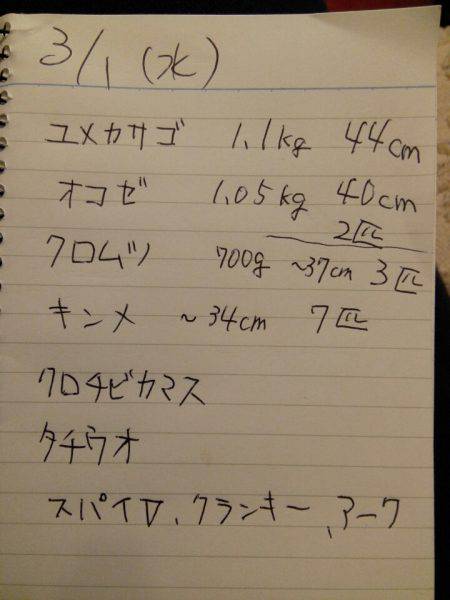 3/1(水)
ユメカサゴ 1.1kg 44cm
オコゼ 1.05kg 40cm
2匹
クロムツ 700g ~37cm 3匹
キンメ ~34cm 7匹
クロチビカマス
タチウオ
スパイロ、クランキー、アーク